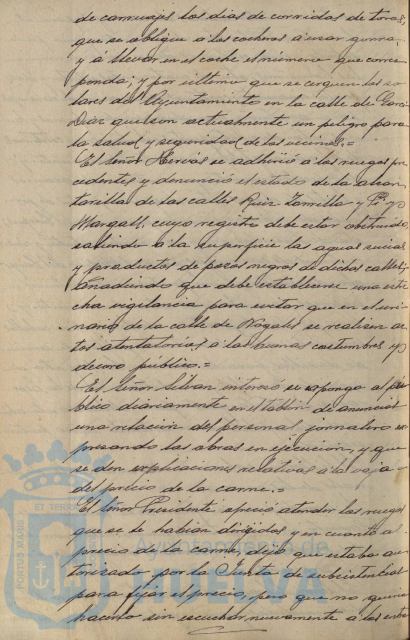 de carruajes los dias de corridas de toros,
que se obligue á los cocheros á usar gorra
y á llevar en el coche el número que corres-
ponda; y por último que se cerquen los so-
lares del Ayuntamiento en la calle de Garci
Diaz que son actualmente un peligro para
la salud y seguridad de los vecinos.=
El Señor Hervás se adhirió á los ruegos pre-
cedentes y denunció el estado de la alcan-
tarilla de las calles Ruiz Zorrilla y Pi y
Margall, cuyo registro debe estar obstruido,
saliendo á la superficie las aguas sucias
y productos de pozos negros de dichas calles;
añadiendo que debe establecerse una estre-
cha vigilancia para evitar que en el uri-
nario de la calle de Nogales se realicen ac-
tos atentatorios á las buenas costumbres y
decoro público.=
El Señor interesó se exponga al pú-
blico diariamente en el tablón de anuncios
una relacion del personal jornalero ex-
presando las obras en ejecución, y que
se den explicaciones relativas á la baja
del precio de la carne.=
El Señor Presidente ofreció atender los ruegos
que se le habian dirigidos y en cuanto al
precio de la carne, dijo que estaba au-
torizado por la Junta de subsistencias
para fijar el precio, pero que no quiere
hacerlo sin escuchar nuevamente á los
PORTUS MARIS ET TERRAE
Ayuntamiento de
HUELVA